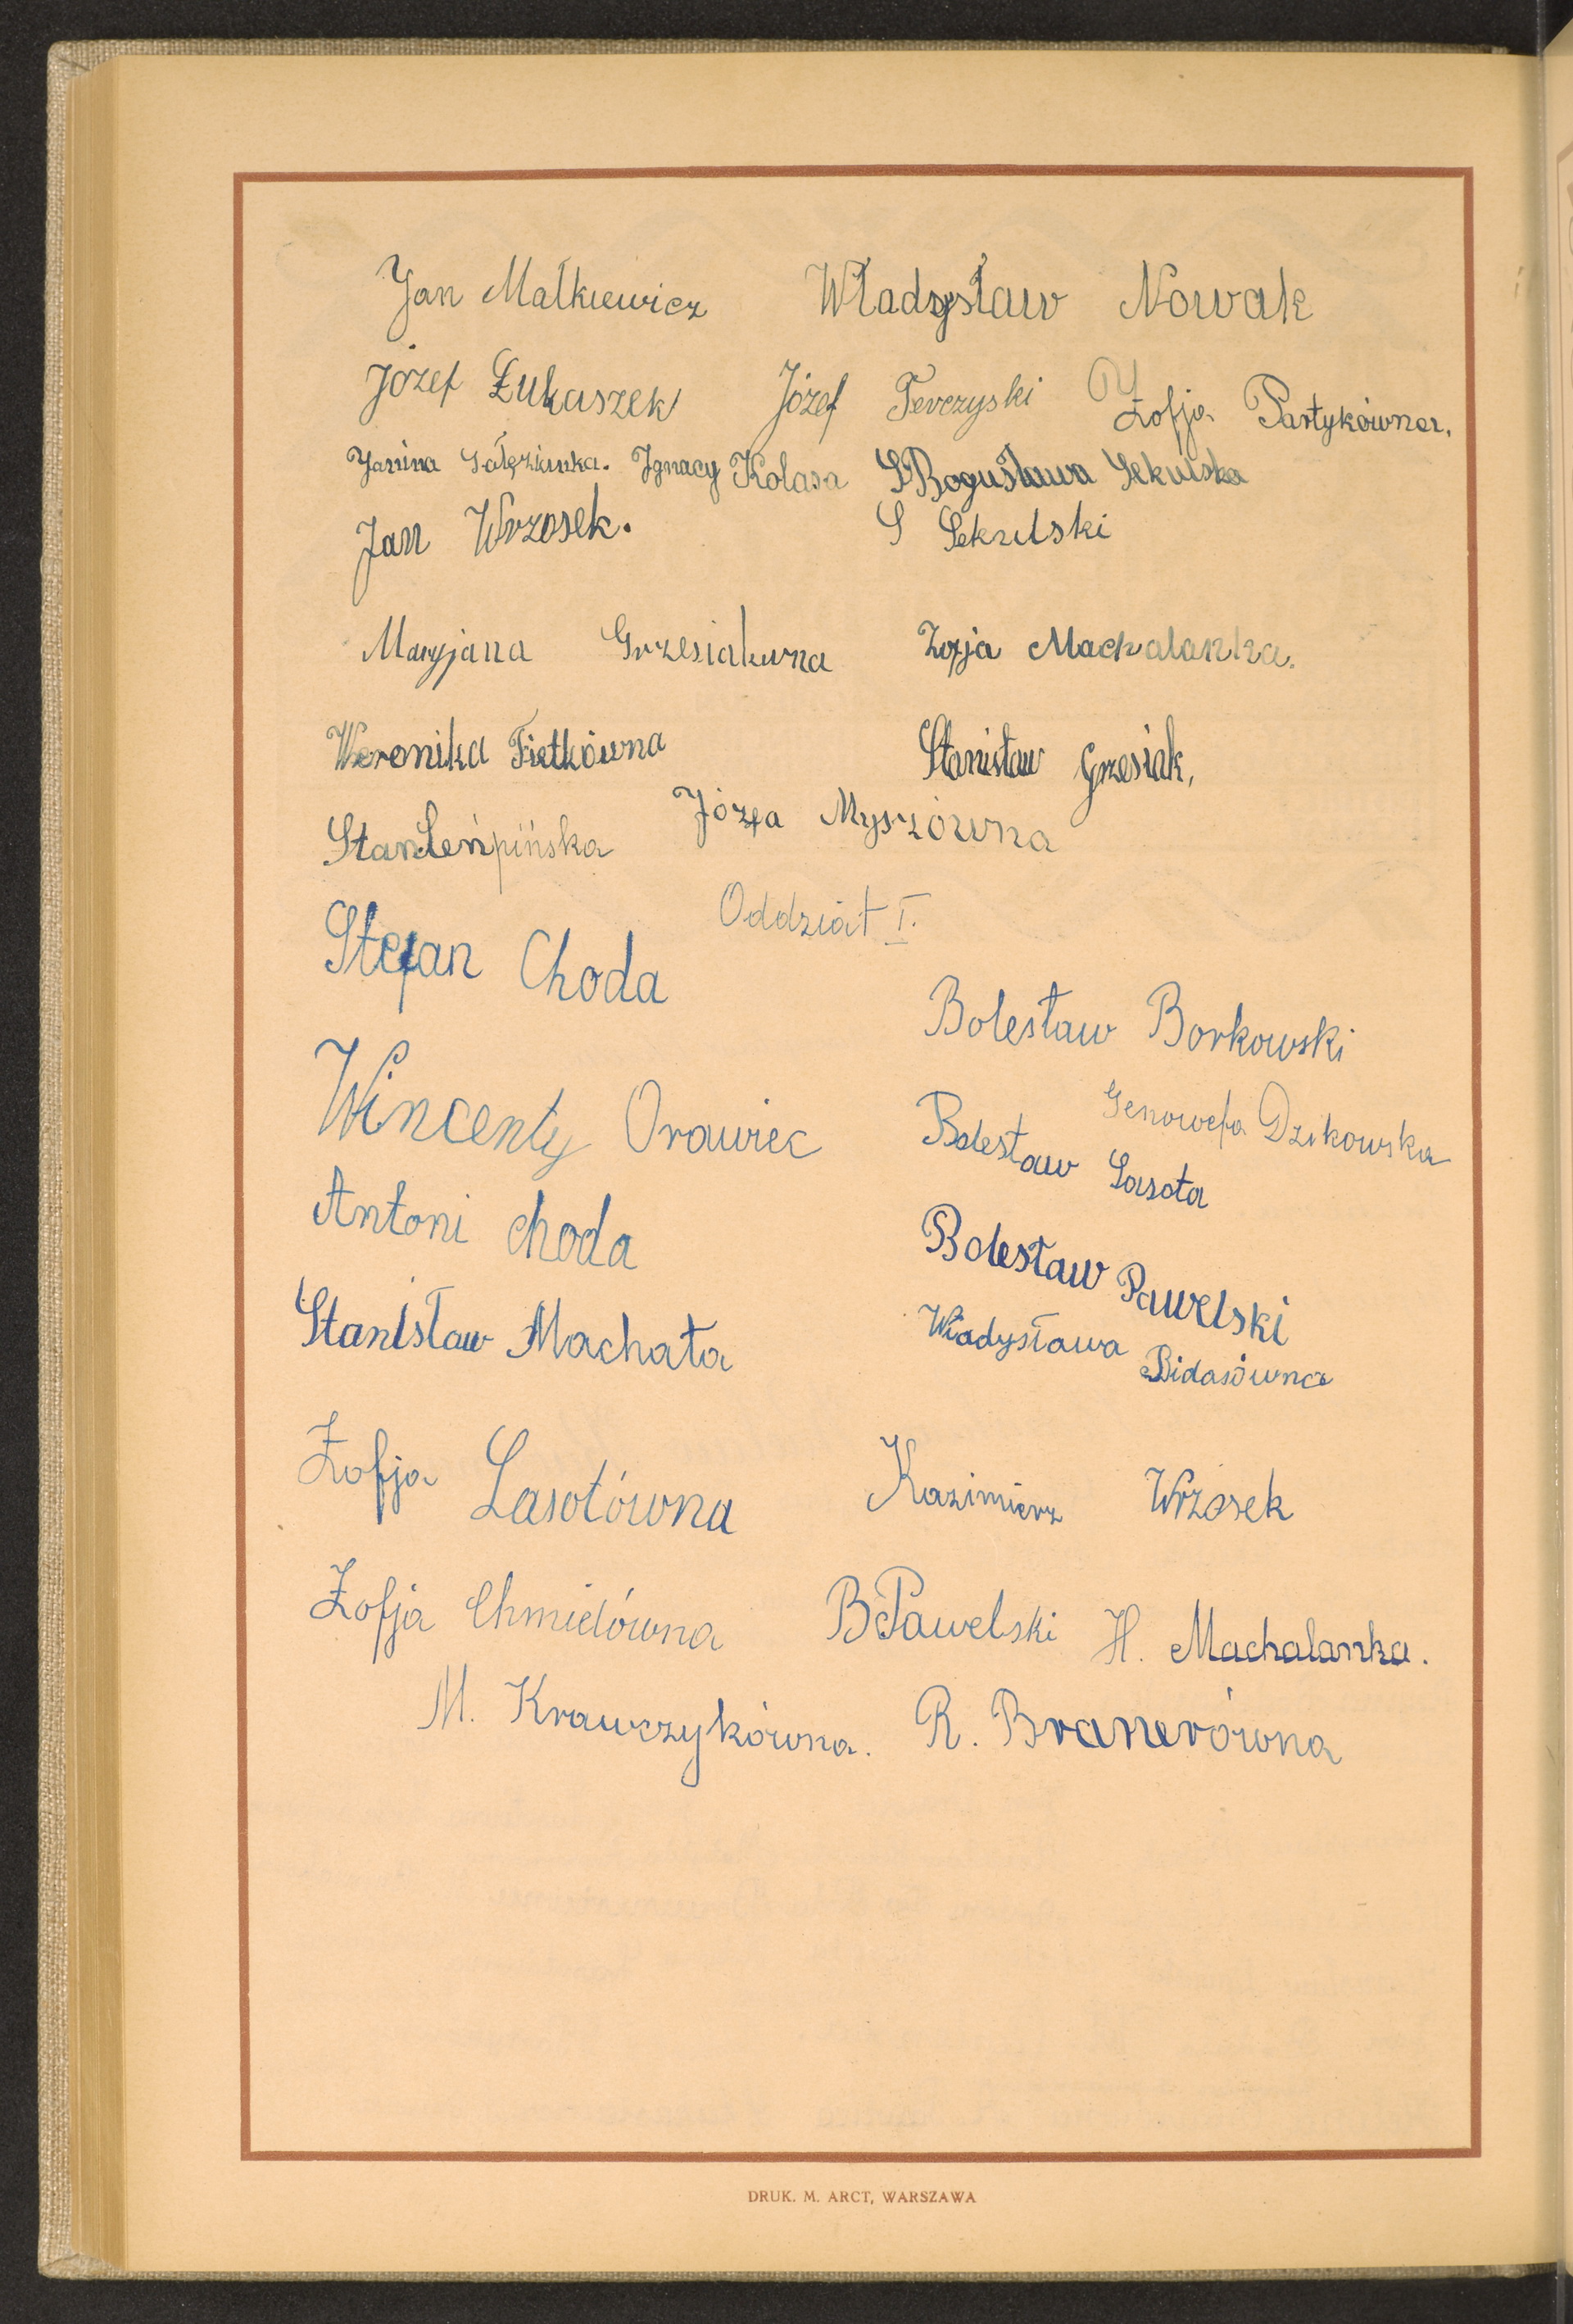 Jan Małkiewicz Władysław Nowak
Józef Łukaszek Józef Ferczyski Zofja Partykówna.
Janina Gałęziunka. Ignacy Kolasa S Bogusława Sekulska
Jan Wrzosek. S Sekulski
Maryjana Grzesiakuwna Zofja Machalanka.
Weronika Fietkówna Stanisław Grzesiak,
Józfa Myszówna
Oddział I.
Stefan Choda
Bolesław Borkowski
Wincenty Orawiec Genowefa Dzikowska
Bolesław Lasota
Antoni Choda Bolesław Pawelski
Stanisław Machała Władysława Bidasówna
Zofja Lasotówna Kazimierz Wrzosek
Zofja Chmielówna B Pawelski H. Machalanka.
M. Krawczykówna. R. Branerówna
DRUK. M. ARCT, WARSZAWA